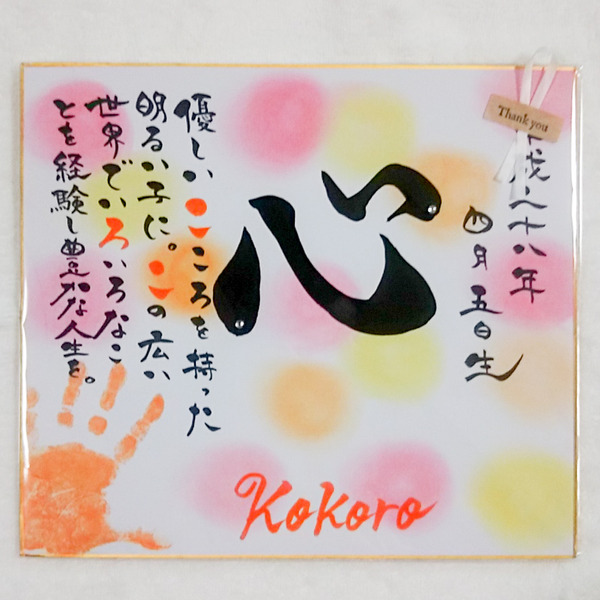 Thank you
平成二十八年
四月五日生
心
優しいこころを持った
明るい子に。この広い
世界でいろいろなこ
とを経験し豊かな人生を。
Kokoro